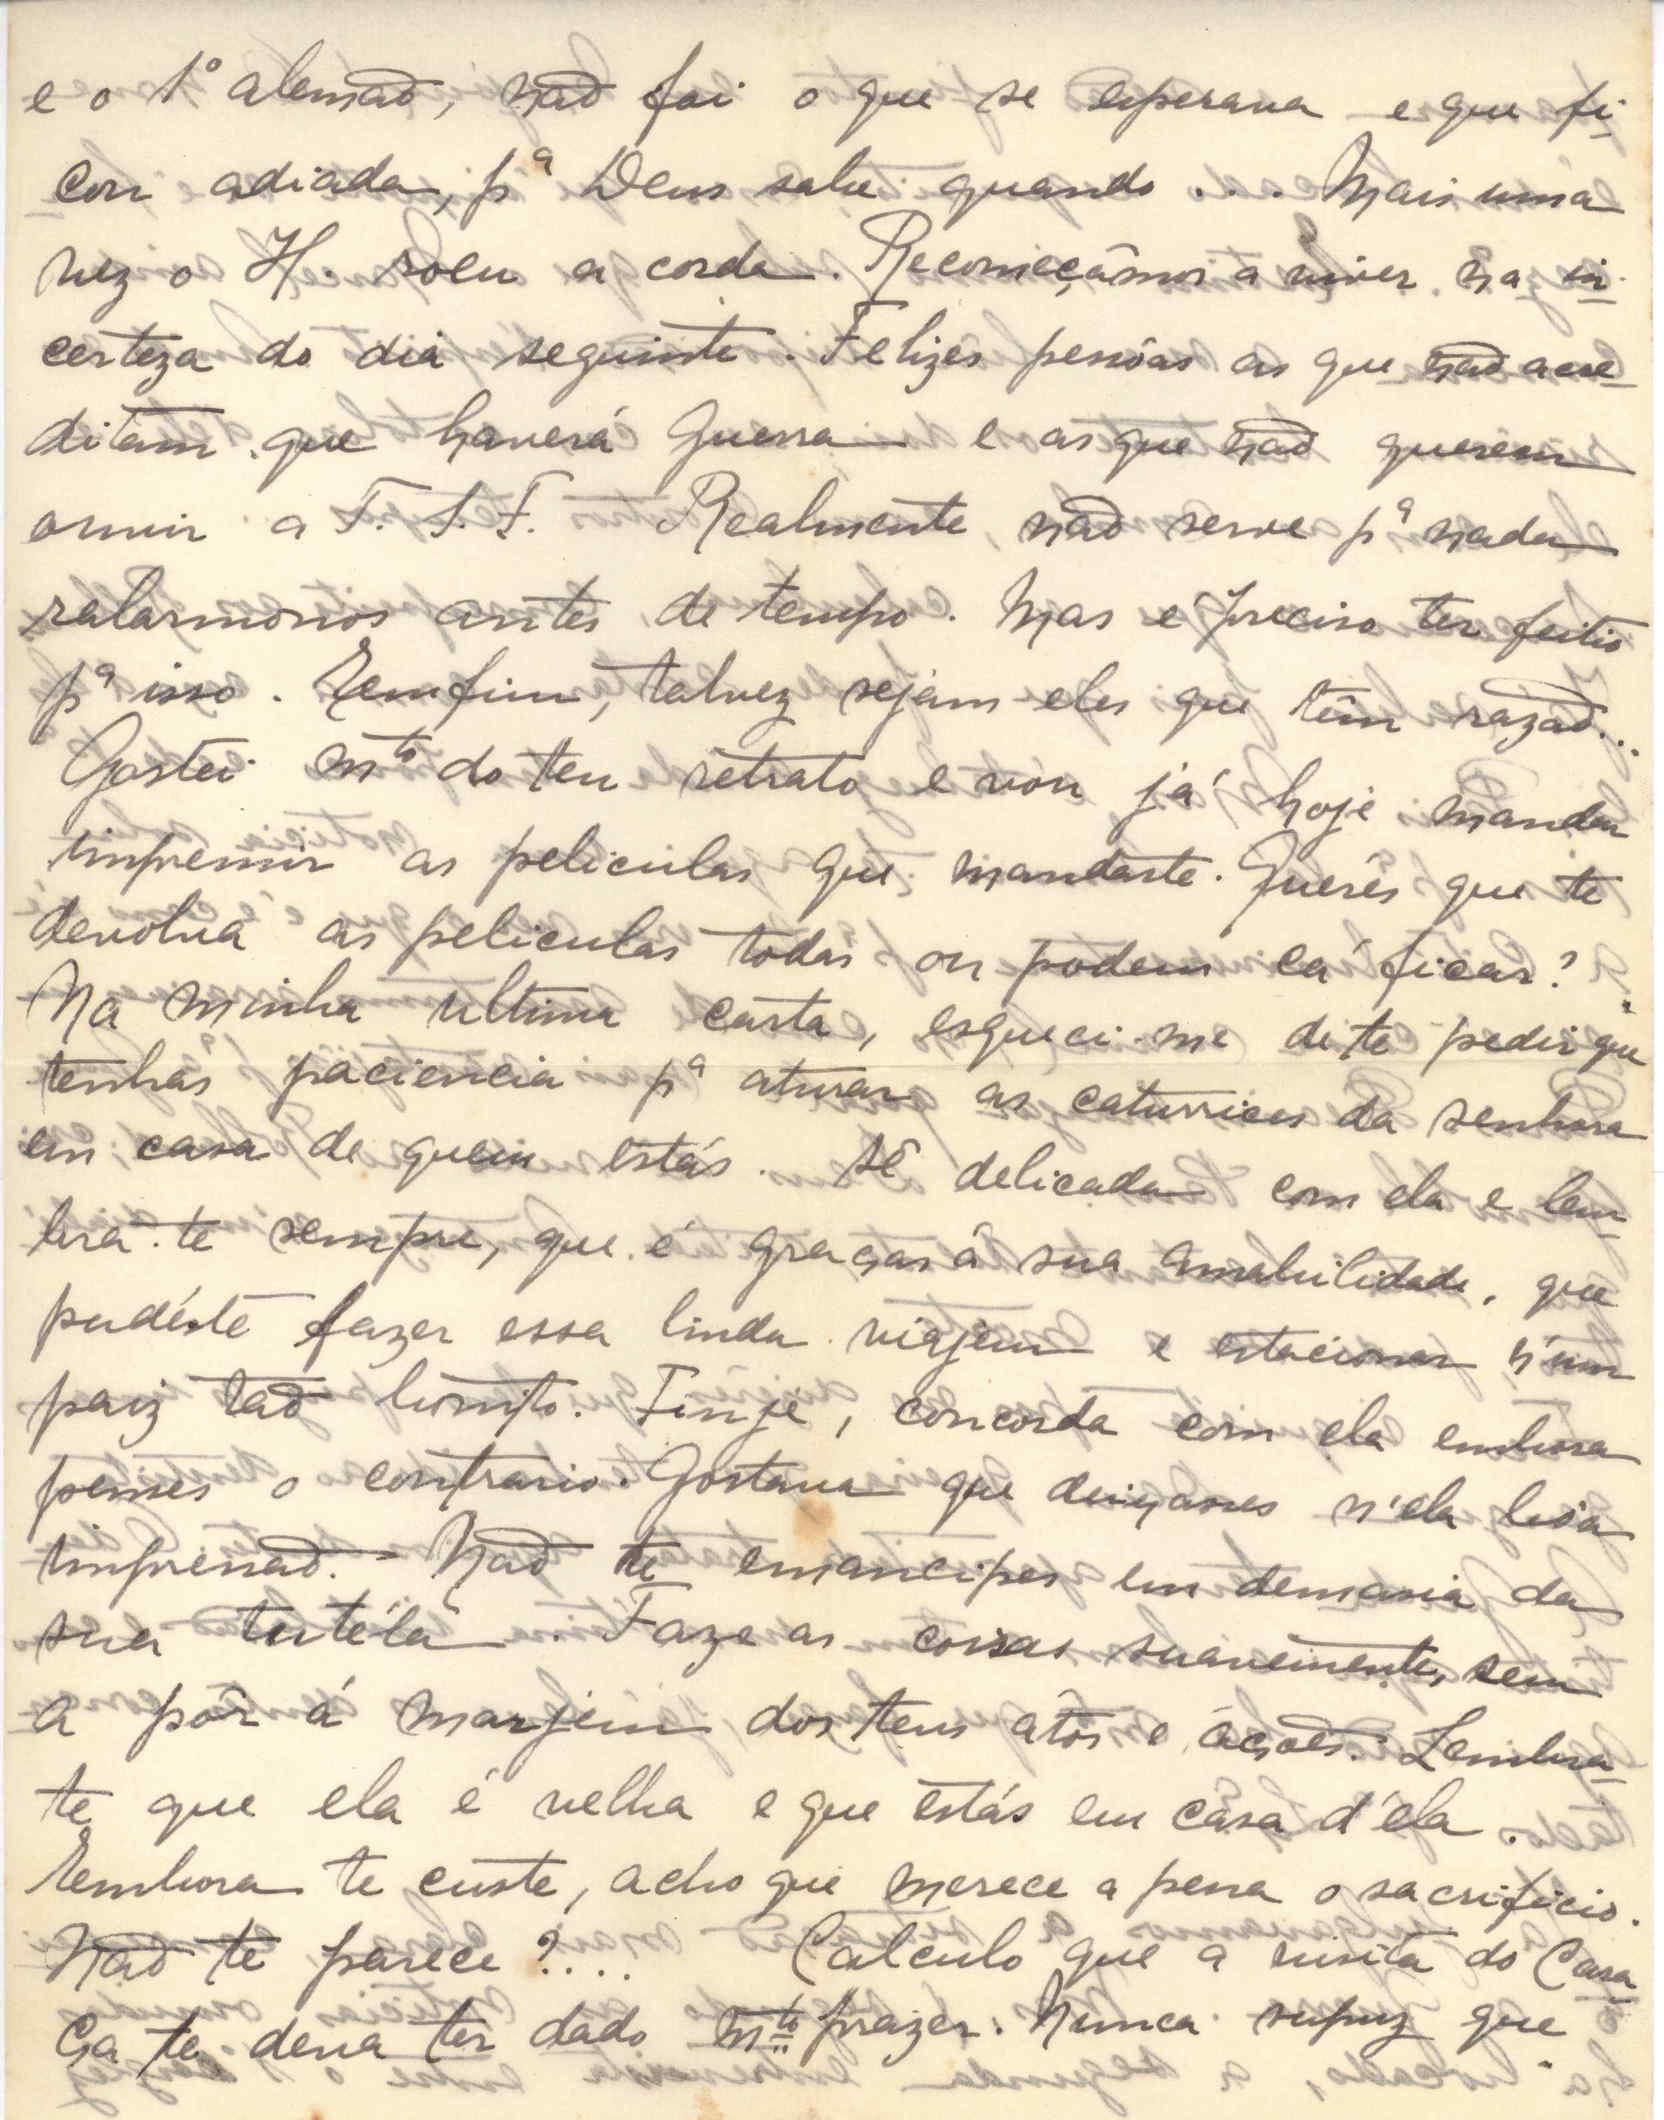 e o 1º alemaõ, naõ foi o que se esperava e que fi-
cou adiada, pª Deus sabe quando ... Mais uma
vez o H. roeu a corda. Recomeçâmos a viver na in-
certeza do dia seguinte. Felizes pessôas as que naõ acre-
ditam que haverá Guerra e as que naõ querem
ouvir a T. S. F. Realmente, naõ serve pª nada
ralarmonos antes de tempo. Mas é preciso ter feitio
pª isso. Emfim, talvez sejam eles que têm razaõ...
Gostei mto do teu retrato e vou já hoje mandar
imprimir as peliculas que mandaste. Queres que te
devolva as peliculas todas ou podem cá ficar?
Na minha ultima carta, esqueci-me de te pedir que
tenhas paciencia pª aturar as caturrices da senhora
em casa de quem estás. Sê delicada com ela e lem-
bra-te sempre, que é graças á sua amabilidade, que
pudéste fazer essa linda viajem e estacionar n'um
paiz taõ bonito. Finje, concorda com ela embora
penses o contrario. Gostava que deixasses n'ela bôa
impressaõ. Naõ te emancipes em demasia da
sua tutéla. Faze as coisas suavemente, sem
a pôr á marjem dos teus átos e áções. Lembra-
te que ela é velha e que estás em casa d'ela.
Embora te custe, acho que merece a pena o sacrificio.
Naõ te parece?.... Calculo que a visita do Cara
Ça te deva ter dado mto prazer. Nunca supuz que